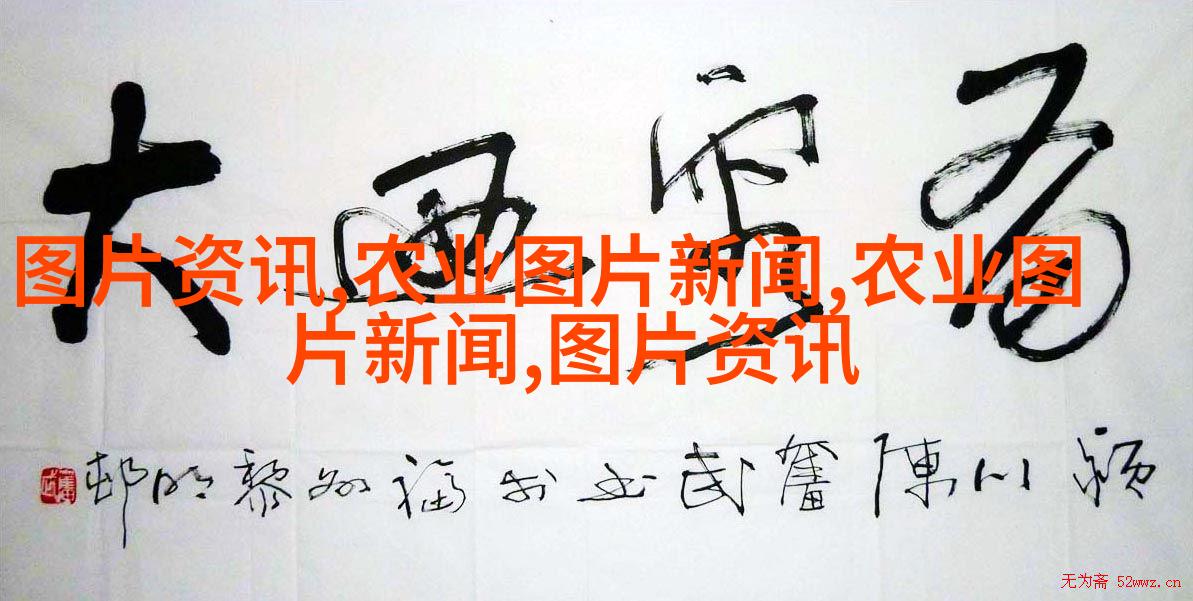 有容迺大
图片资讯,农业图片新闻,农业图
片新闻,图片资讯
颍川陳奮武书於福州黎明邨
无为斋 52wwz.cn